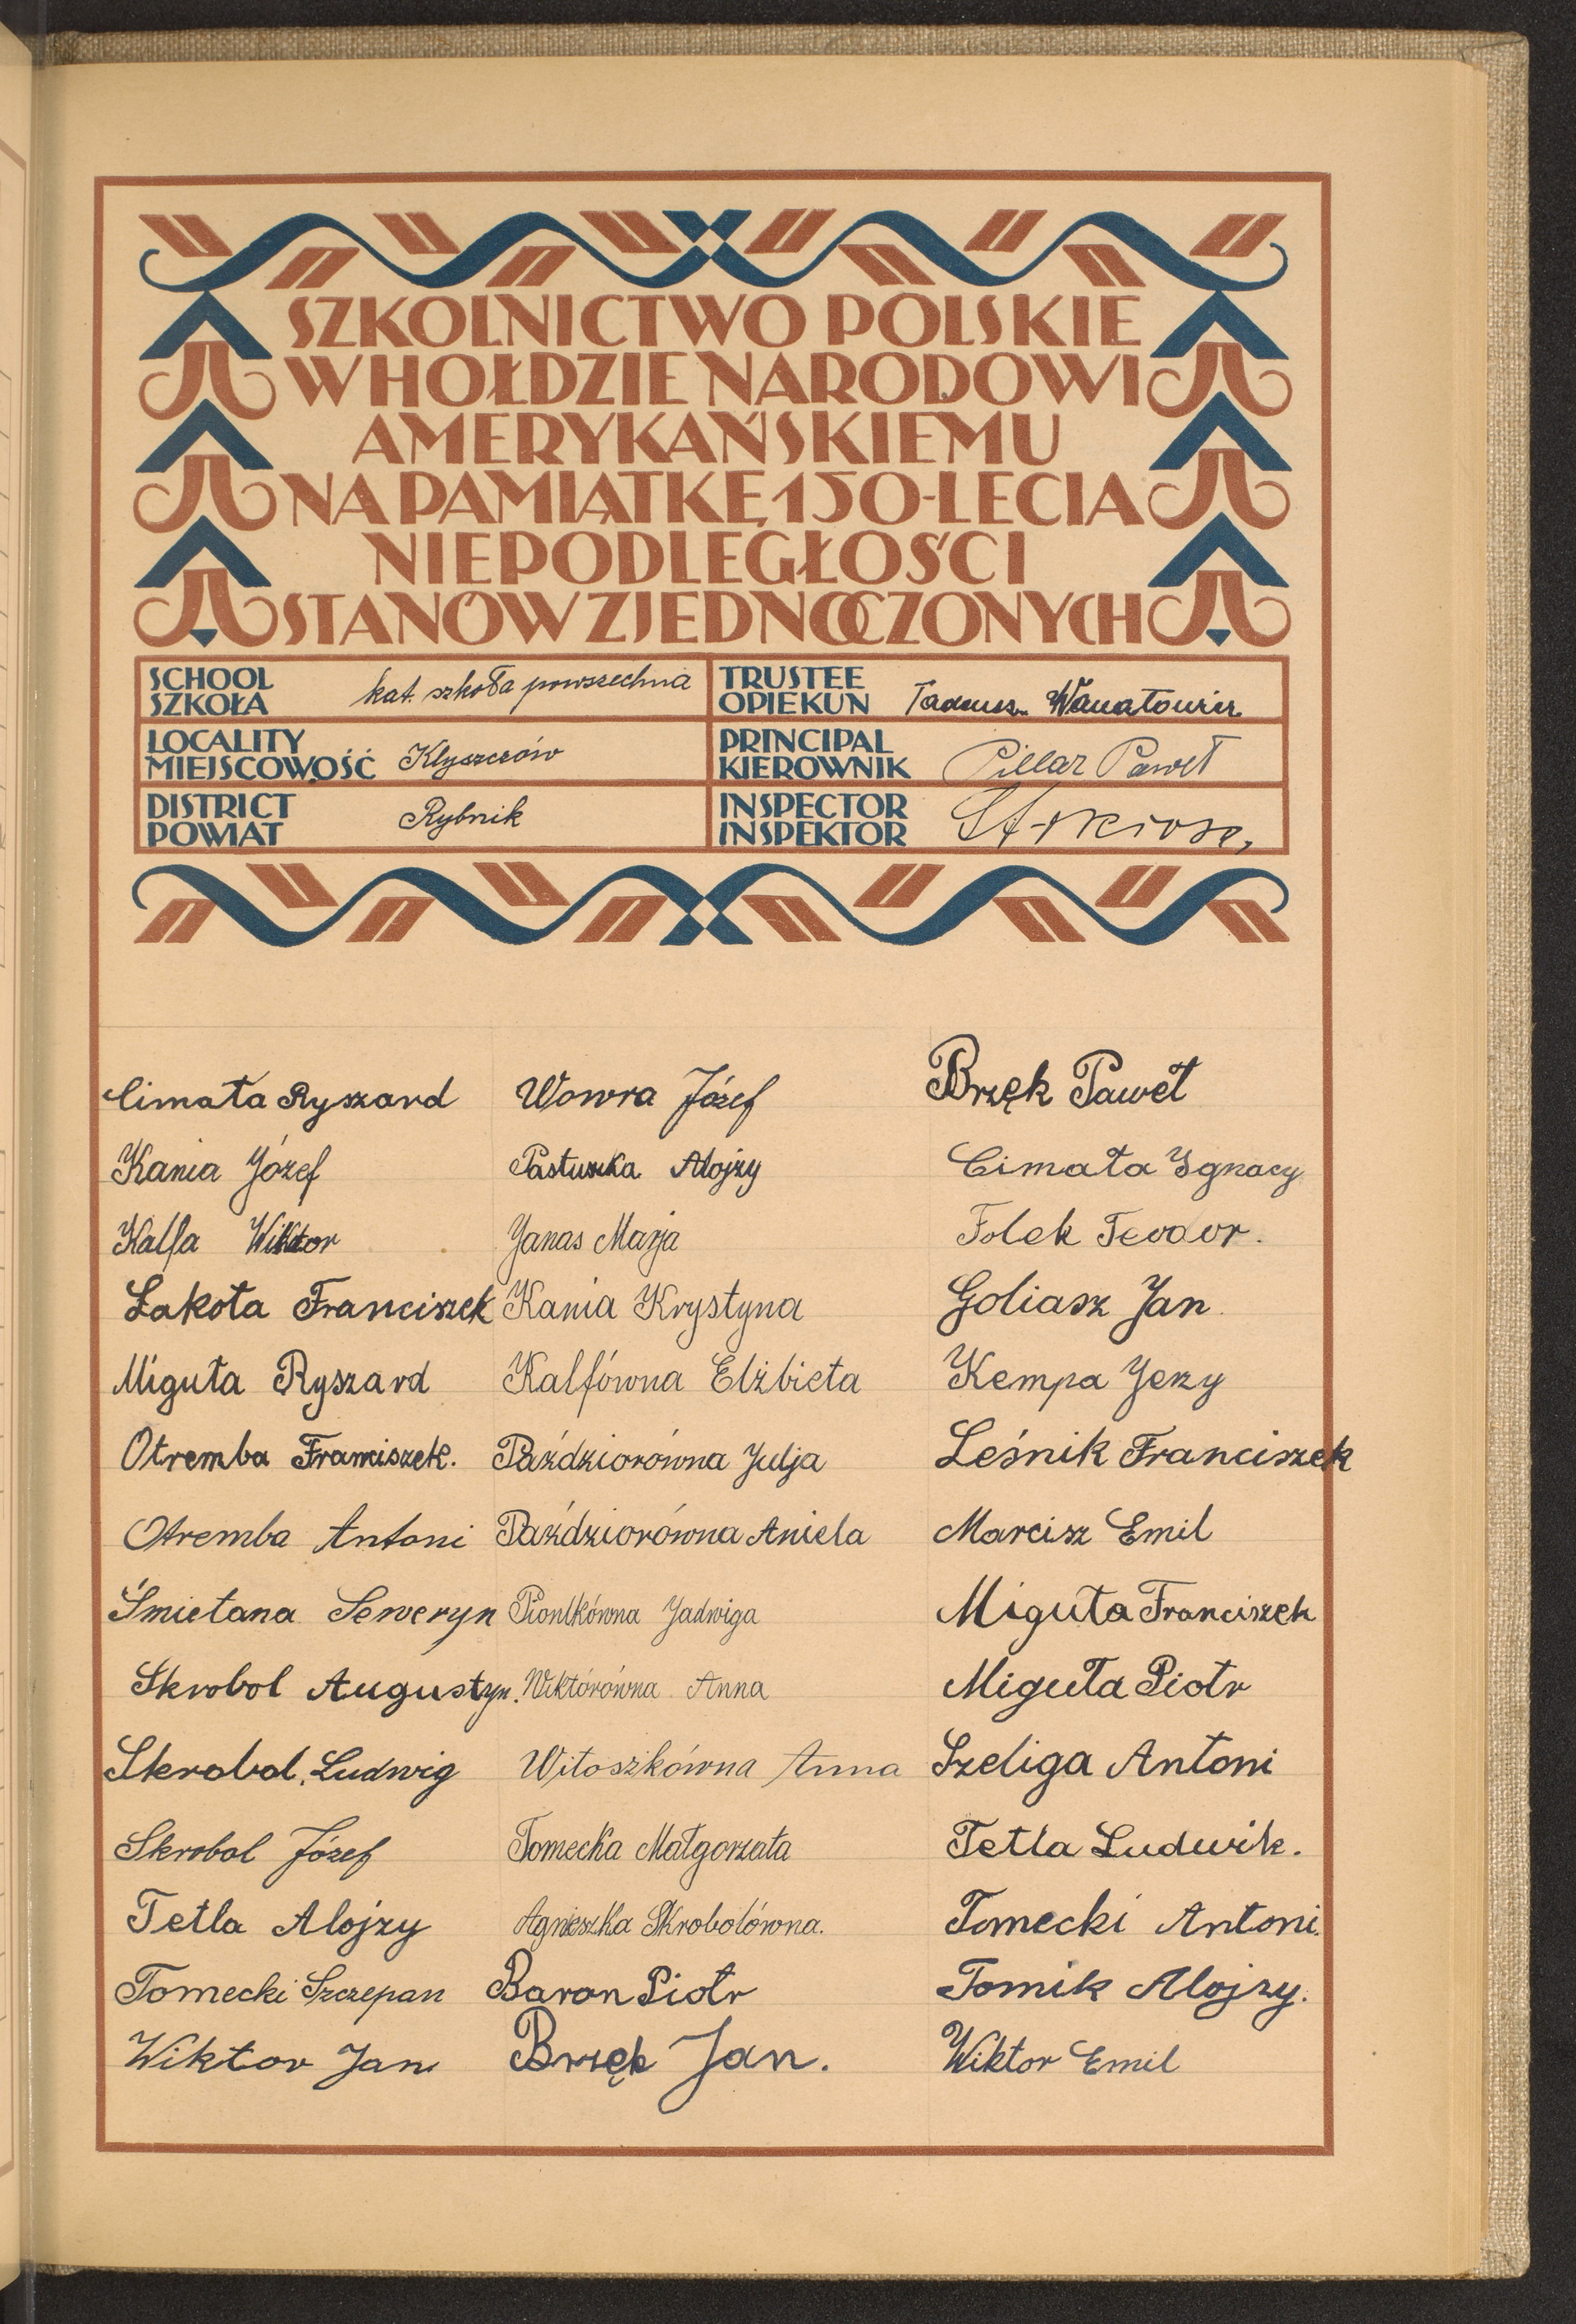 SZKOLNICTWO POLSKIE
W HOŁDZIE NARODOWI
AMERYKAŃSKIEMU
NA PAMIĄTKĘ 150-LECIA
NIEPODLEGŁOŚCI
STANÓW ZJEDNOCZONYCH
SCHOOL
SZKOŁA
kat. szkoła powszechna
TRUSTEE
OPIEKUN
Tadeusz
LOCALITY
MIEJSCOWOŚĆ
Kłyszczów
PRINCIPAL
KIEROWNIK
Pillar Paweł
DISTRICT
POWIAT
Rybnik
INSPECTOR
INSPEKTOR
Cimała Ryszard
Kania Józef
Kalfa Wiktor
Łakota Franciszek
Miguła Ryszard
Otremba Franciszek.
Otremba Antoni
Śmietana Seweryn
Skrobol Augustyn.
Skrobol, Ludwig
Skrobol Józef
Tetla Alojzy
Tomecki Szczepan
Wiktor Jan
Wowra Józef
Pastuszka Alojzy
Janas Marja
Kania Krystyna
Kalfówna Elżbieta
Paździorówna Julja
Paździorówna Aniela
Piontkówna Jadwiga
Wiktórówna Anna
Witoszkówna Anna
Tomecka Małgorzata
Agnieszka Skrobolówna.
Baron Piotr
Brzęk Jan.
Brzęk Paweł
Cimała Ignacy
Folek Teodor.
Goliasz Jan
Kempa Jerzy
Leśnik Franciszek
Marcisz Emil
Miguła Franciszek
Miguła Piotr
Szeliga Antoni
Tetla Ludwik.
Tomecki Antoni.
Tomik Alojzy.
Wiktor Emil